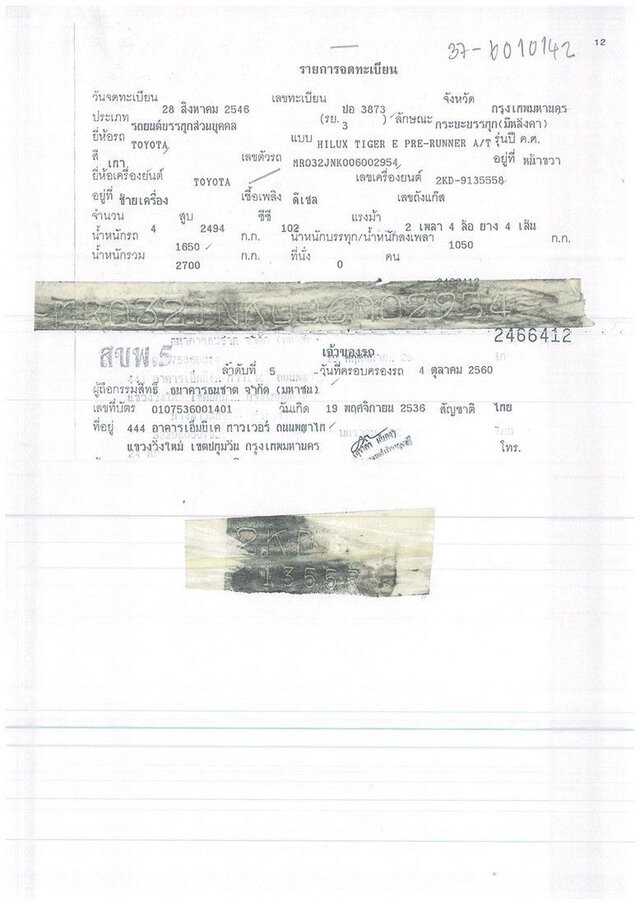 37-6010142
12
รายการจดทะเบียน
วันจดทะเบียน 28 สิงหาคม 2546 เลขทะเบียน ปอ 3873 จังหวัด กรุงเทพมหานคร
ประเภท รถยนต์บรรทุกส่วนบุคคล (รย. 3 ) ลักษณะ กระบะบรรทุก(มีหลังคา)
ยี่ห้อรถ TOYOTA แบบ HILUX TIGER E PRE-RUNNER A/T รุ่นปี ค.ศ.
สี เทา เลขตัวรถ MR032JNK006002954 อยู่ที่ หน้าขวา
ยี่ห้อเครื่องยนต์ TOYOTA เลขเครื่องยนต์ 2KD-9135556
อยู่ที่ ซ้ายเครื่อง เชื้อเพลิง ดีเซล เลขถังแก๊ส
จำนวน 4 สูบ 2494 ซีซี 102 แรงม้า 2 เพลา 4 ล้อ ยาง 4 เส้น
น้ำหนักรถ 1650 ก.ก. น้ำหนักบรรทุก/น้ำหนักลงเพลา 1050 ก.ก.
น้ำหนักรวม 2700 ก.ก. ที่นั่ง 0 คน
MR032JNK006002954
2466412
สขพ.5
เจ้าของรถ
ลำดับที่ 5 วันที่ครอบครองรถ 4 ตุลาคม 2560
ผู้ถือกรรมสิทธิ์ ธนาคารธนชาต จำกัด (มหาชน)
เลขที่บัตร 0107536001401 วันเกิด 19 พฤศจิกายน 2536 สัญชาติ ไทย
ที่อยู่ 444 อาคารเอ็มบีเค ทาวเวอร์ ถนนพญาไท
แขวงวังใหม่ เขตปทุมวัน กรุงเทพมหานคร โทร.
2KD